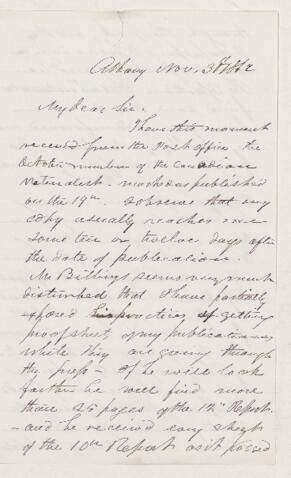 Albany Nov. 3d 1862
My dear Sir.
I have this moment
received from the Post office the
October number of the Canadian
Naturalist - marked as published
on the 19th. I observe that my
copy usually reaches me
some ten or twelve days after
the date of publication.
Mr Billings seems very much
disturbed that I have partially
exposed his practice of getting
proof sheets of my publications
while they are going through
the press - If he will look
farther he will find more
than 25 pages of the 12th Report
- and he received every sheet
of the 10th Report as it passed